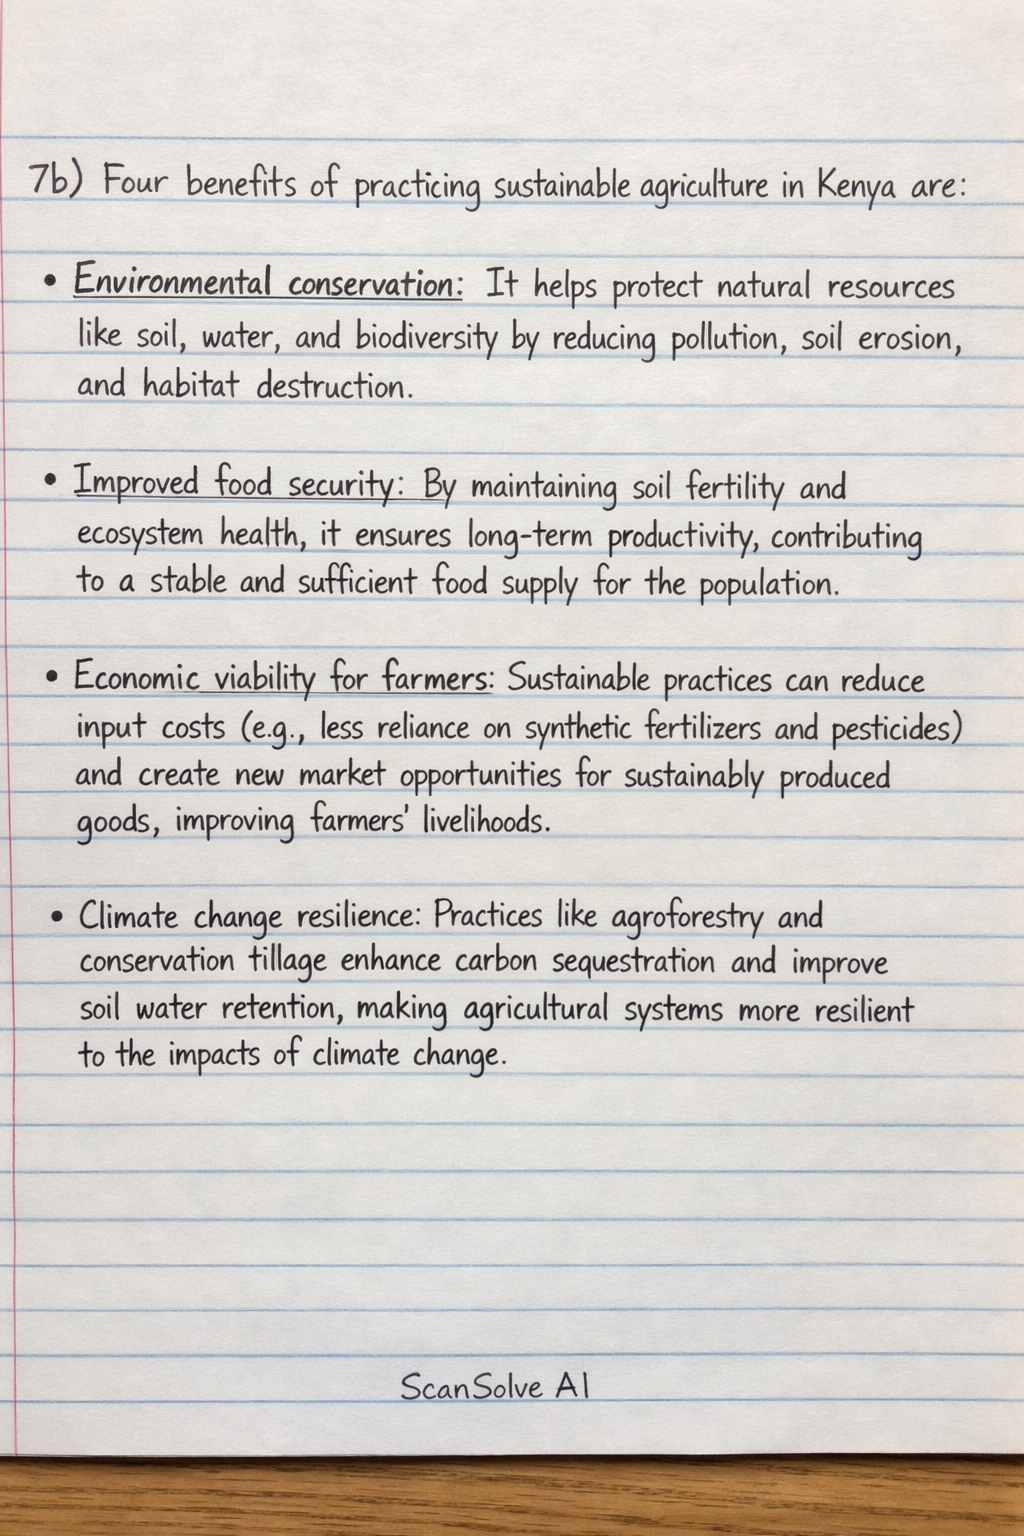 7b) Four benefits of practicing sustainable agriculture in Kenya are:
• Environmental conservation: It helps protect natural resources
like soil, water, and biodiversity by reducing pollution, soil erosion,
and habitat destruction.
• Improved food security: By maintaining soil fertility and
ecosystem health, it ensures long-term productivity, contributing
to a stable and sufficient food supply for the population.
• Economic viability for farmers: Sustainable practices can reduce
input costs (e.g., less reliance on synthetic fertilizers and pesticides)
and create new market opportunities for sustainably produced
goods, improving farmers' livelihoods.
• Climate change resilience: Practices like agroforestry and
conservation tillage enhance carbon sequestration and improve
soil water retention, making agricultural systems more resilient
to the impacts of climate change.
ScanSolve AI